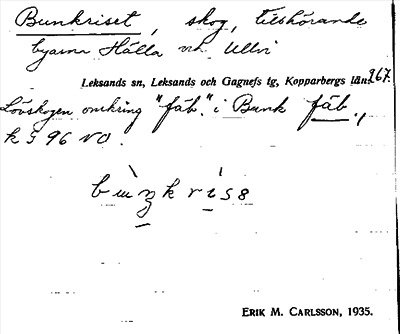 Bunkriset, skog, tillhörande
byarna Hälla och Ullvi
Leksands sn, Leksands och Gagnefs tg, Kopparbergs län. 267.
Lövskogen omkring "fäb." i Bunk fäb.,
k § 96 VO.
ERIK M. CARLSSON, 1935.